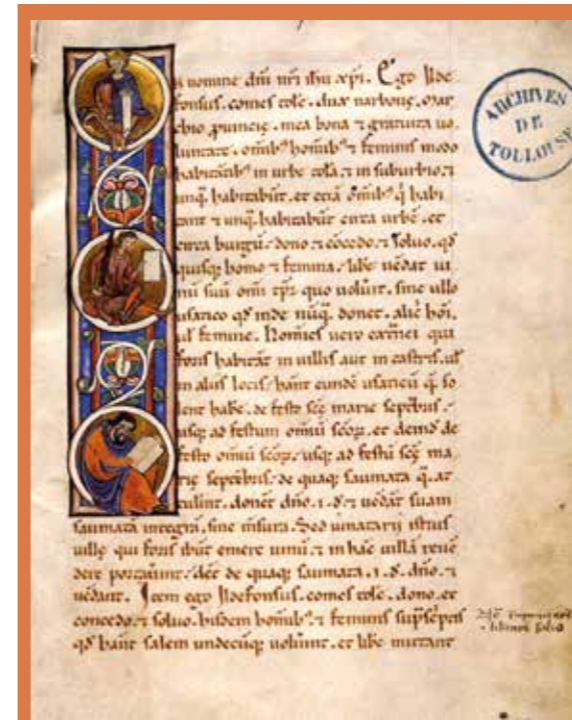 n nomine dni nri ihu xpi. Ego Ilde
fonsus. comes tolē. dux narbonę. mar
chio puincię. mea bona ⁊ gratuita uo
luntate. omib⁹ homib⁹ ⁊ feminis modo
habitātib⁹ in urbe tolā. ⁊ in suburbio. ⁊
unq̄. habitabūt. et etiā omib⁹ q̇ habi
tant ⁊ unq̄. habitabūt circa urbē. et
circa burgū. dono ⁊ cōcedo. ⁊ soluo. qd
quisq; homo ⁊ femina. libe uēdat ui
nū suū omi tpr quo uolūit. sine ullo
usatico qd inde nūq̄. donet. alic hōi.
ul femine. Homies uero carnei qui
foris habitāt in uillis aut in castris. ul
in aliis locis. hānt eundē usaticū q̄ so
lent habē. de festo scē marie septbris.
usq; ad festum omiū scōꝝ. et deinď de
festo omiū scōꝝ. usq; ad festū scē ma
rię septēbris. de quaq; saumata q̄. at
tulint. donēt dn̄o. 1. d. ⁊ uēdāt suam
saumatā integrā. sine mēsura. Sed uinatarii istius
uillę qui foris ibūt emere uinū. ⁊ in hāc uillā reuē
dere portauint. dēt de quaq; saumata. 1. d. dn̄o. ⁊
uēdant. Item ego Ildefonsus. comes tolē. dono. et
concedo. ⁊ soluo. hisdem homib⁹. ⁊ feminis supsc̄ptis
qd hānt salem undecūq; uolūint. et libe mittant
ARCHIVES
DE
TOULOUSE